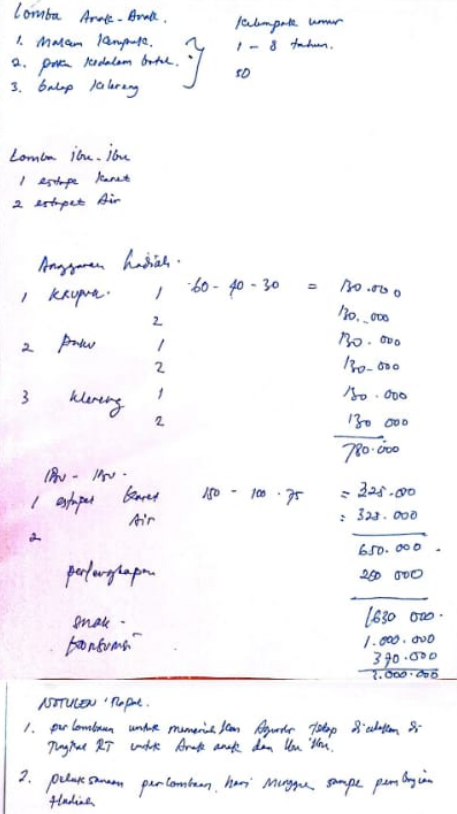 Lomba Anak-Anak.
Kelompok umur
1. Makan Kerupuk.
1 - 8 tahun.
2. paku kedalam botol.
50
3. balap kelereng
Lomba ibu-ibu
1 estapet karet
2 estapet Air
Anggaran hadiah.
1 Krupuk. 1 60 - 40 - 30 = 130.000
2 130.000
2 paku 1 130.000
2 130.000
3 klereng 1 130.000
2 130 000
780.000
IBU - IBU.
1 estapet karet 150 - 100 . 75 = 325.000
Air = 325.000
2
650.000
perlengkapan 200 000
1630 000
snak -
konsumsi 1.000.000
370.000
2.000.000
NOTULEN Rapat.
1. perlombaan untuk memeriahkan Agustus tetap di adakan di
Tingkat RT untuk Anak anak dan Ibu Ibu.
2. pelaksanaan perlombaan hari minggu sampe pembagian
Hadiah